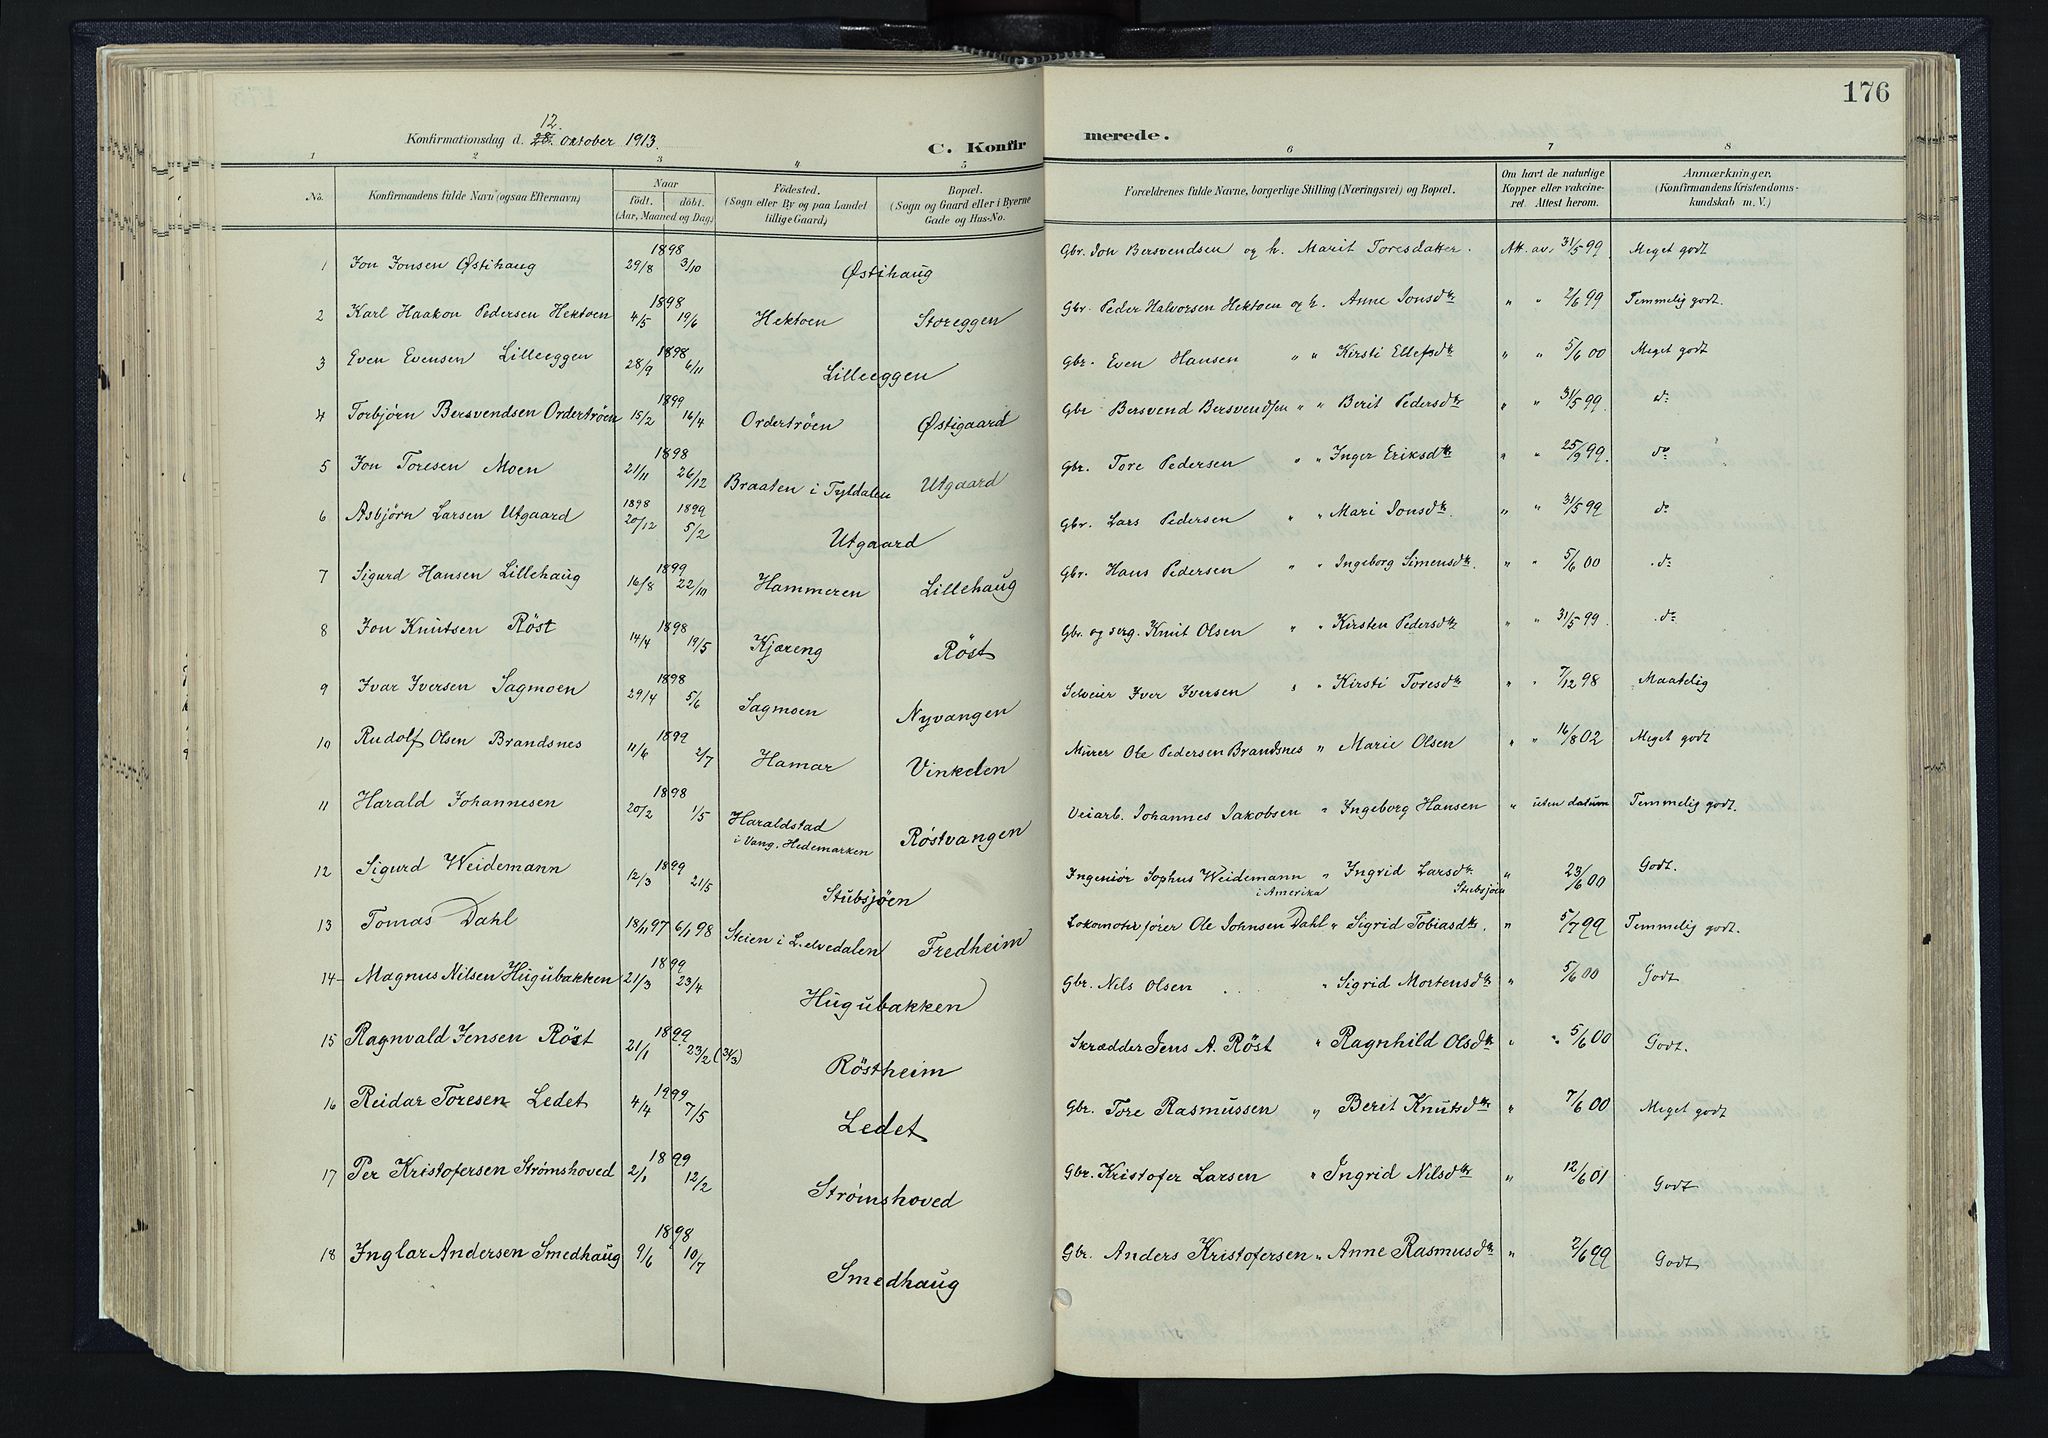 176
Konfirmationsdag d. 28. 12. Oktober 1913.
C. Konfirmerede.
1 2 3 4 5 6 7 8
No. Konfirmandens fulde Navn (ogsaa Efternavn) Naar født. døbt. (Aar, Maaned og Dag) Födested. (Sogn eller By og paa Landet tillige Gaard) Bopæl. (Sogn og Gaard eller i Byerne Gade og Hus-No. Forældrenes fulde Navne, borgerlige Stilling (Næringsvei) og Bopæl. Om havt de naturlige Kopper eller vakcineret. Attest herom. Anmærkninger. (Konfirmandens Kristendomskundskab m. V.)
1 Jon Jonsen Østihaug 1898 29/8 3/10 Østihaug Gbr. Jon Bersvendsen og h. Marit Toresdatter. Att. av 31/5 99 Meget godt
2 Karl Haakon Pedersen Hektoen 1898 4/5 19/6 Hektoen Storeggen Gbr. Peder Halvorsen Hektoen og h. Anne Jonsdtr " " 2/6 99 Temmelig godt.
3 Even Evensen Lilleeggen 1898 28/9 6/11 Lilleeggen Gbr. Even Hansen " " Kirsti Ellefsdtr " " 5/6 00 Meget godt
4 Torbjørn Bersvendsen Ordertrøen 1899 15/2 16/4 Ordertrøen Østigaard Gbr Bersvend Bersvendsen " " Berit Pedersdtr " " 31/5 99. do
5 Jon Toresen Moen 1898 21/11 26/12 Braaten i Tyldalen Utgaard Gbr. Tore Pedersen " " Inger Eriksdtr " " 25/9 99. do
6 Asbjørn Larsen Utgaard 1898 20/12 1899 5/2 Utgaard Gbr. Lars Pedersen " " Mari Jonsdtr. " " 31/5 99 do
7 Sigurd Hansen Lillehaug 1899 16/8 22/10 Hammeren Lillehaug Gbr. Hans Pedersen " " Ingeborg Simensdtr. " " 5/6 00 do
8 Jon Knutsen Röst 1898 14/4 19/5 Kjæreng Röst Gbr. og serg. Knut Olsen " " Kirsten Pedersdtr " " 31/5 99. do
9 Ivar Iversen Sagmoen 1898 29/4 5/6 Sagmoen Nyvangen Selveier Iver Iversen " " Kirsti Toresdtr " " 7/12 98 Maatelig
10 Rudolf Olsen Brandsnes 1899 11/6 2/7 Hamar Vinkelen Murer Ole Pedersen Brandsnes " Marie Olsen " " 16/8 02 Meget godt
11 Harald Johannesen 1898 20/2 1/5 Haraldstad i Vang, Hedemarken Röstvangen Veiarb. Johannes Jakobsen " Ingeborg Hansen " uten datum Temmelig godt.
12 Sigurd Weidemann 1899 12/3 21/5 Stubsjøen Ingeniør Sophus Weidemann i Amerika " Ingrid Larsdtr. Stubsjøen " 23/6 00 Godt.
13 Tomas Dahl 18/11 97 6/1 98 Steien i L.elvedalen Fredheim Lokomotivfører Ole Johnsen Dahl " Sigrid Tobiasdtr. " 5/7 99 Temmelig godt.
14 Magnus Nilsen Hugubakken 1899 21/3 23/4 Hugubakken Gbr. Nils Olsen " Sigrid Mortensdtr " 5/6 00 Godt
15 Ragnvald Jensen Röst 1899 21/1 23/2 (31/3) Röstheim Skrædder Jens A. Röst " Ragnhild Olsdtr " " 5/6 00 Godt.
16 Reidar Toresen Ledet 1999 4/4 7/5 Ledet Gbr. Tore Rasmussen " Berit Knutsdtr " 7/6 00 Meget godt
17 Per Kristofersen Strømshoved 1899 2/1 12/2 Strømshoved Gbr. Kristofer Larsen " Ingrid Nilsdtr " 12/6 01 Godt
18 Inglar Andersen Smedhaug 1898 9/6 10/7 Smedhaug Gbr. Anders Kristofersen " Anne Rasmusdtr " 2/6 99 Godt